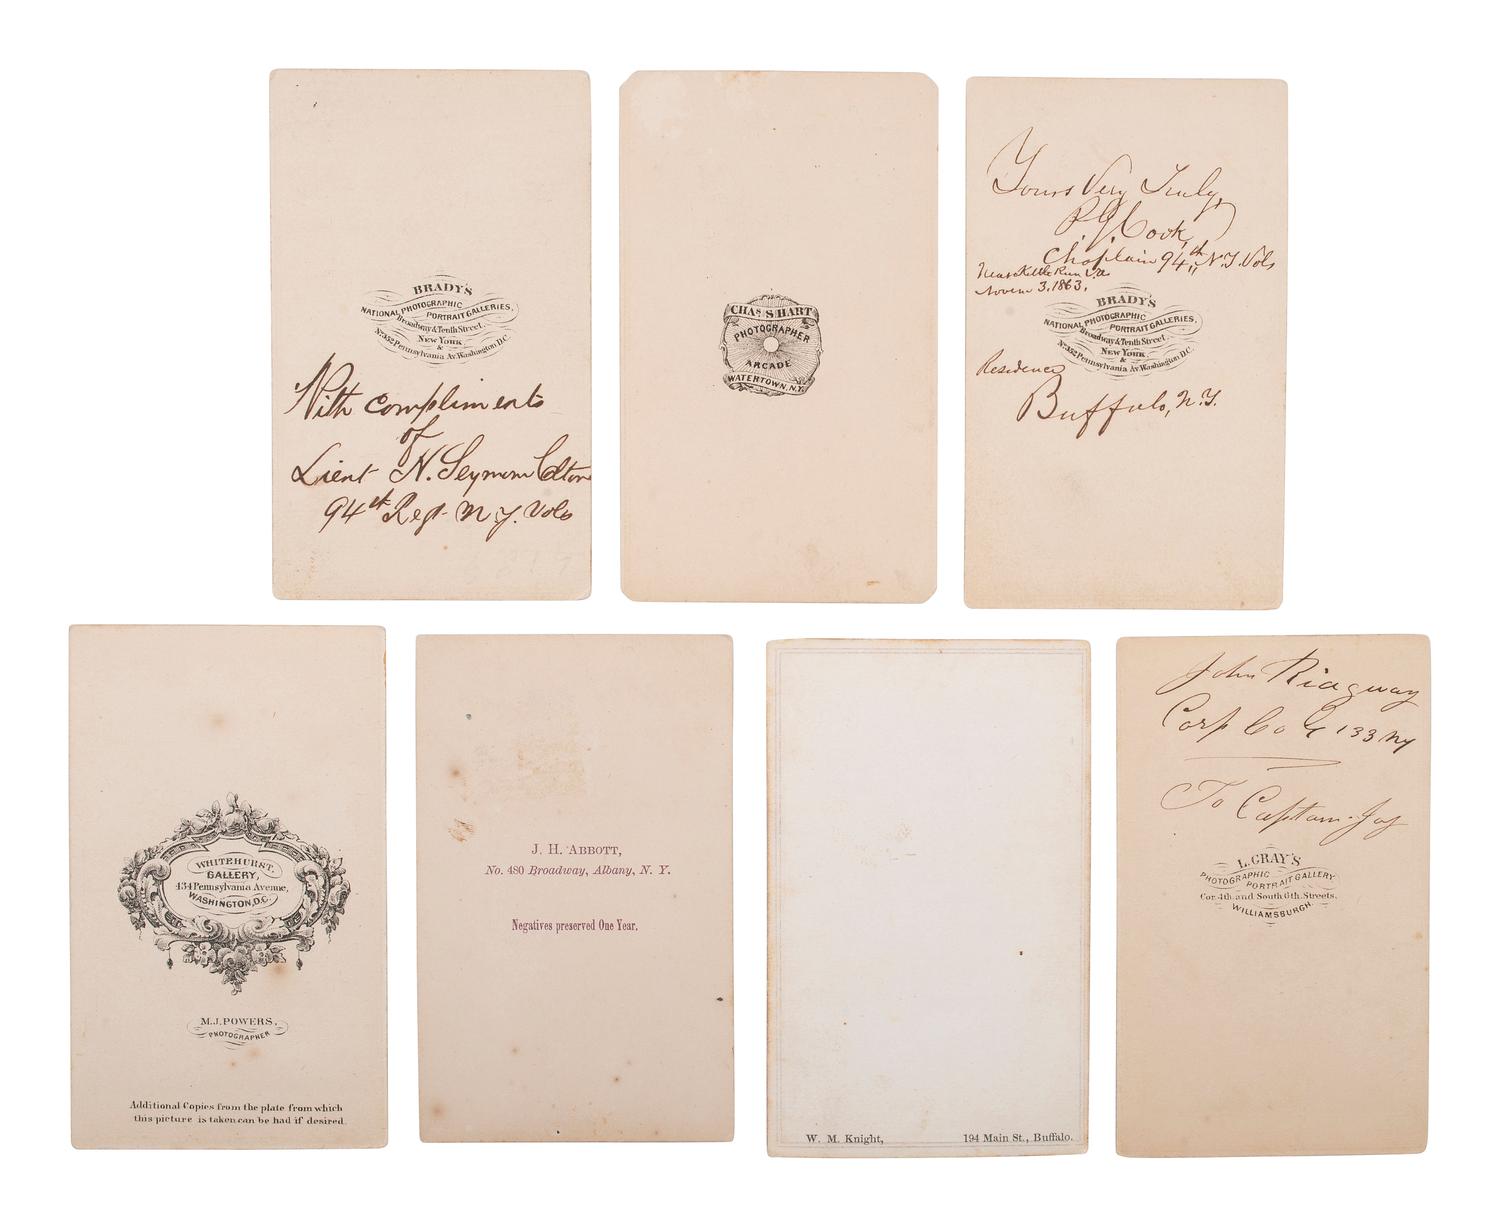 BRADY'S
NATIONAL PHOTOGRAPHIC
PORTRAIT GALLERIES,
Broadway & Tenth Street.
New York
&
No. 352 Pennsylvania Av. Washington D.C.
With compliments
of
Lieut N. Seymour Colton
94th Regt N.Y. Vols
CHAS S HART
PHOTOGRAPHER
ARCADE
WATERTOWN, N.Y.
Yours Very Truly,
P. G. Cook,
Chaplain 94th N.Y. Vols
Near Kettle Run Va
Novem 3, 1863.
BRADY'S
NATIONAL PHOTOGRAPHIC
PORTRAIT GALLERIES,
Broadway & Tenth Street.
New York
&
No. 352 Pennsylvania Av. Washington D.C.
Residence
Buffalo, N.Y.
WHITEHURST.
GALLERY,
434 Pennsylvania Avenue,
WASHINGTON, D.C.
M.J. POWERS,
PHOTOGRAPHER
Additional Copies from the plate from which
this picture is taken can be had if desired.
J. H. ABBOTT,
No. 480 Broadway, Albany, N. Y.
Negatives preserved One Year.
W. M. Knight, 194 Main St., Buffalo.
John Ridgway
Corp Co G 133 NY
To Captain Joy
L. GRAY'S
PHOTOGRAPHIC
PORTRAIT GALLERY
Cor. 4th. and South 6th. Streets,
WILLIAMSBURGH.